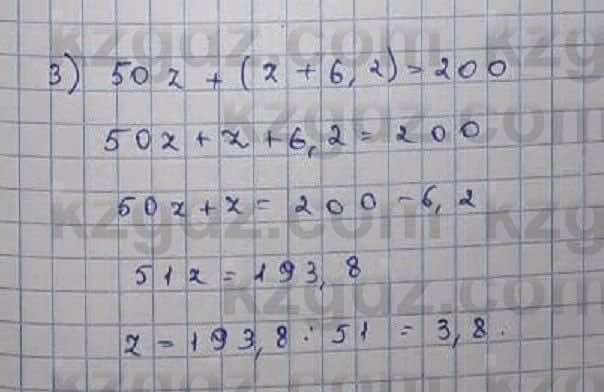 3) 50x + (x + 6,2) = 200
50x + x + 6,2 = 200
50x + x = 200 - 6,2
51x = 193,8
x = 193,8 : 51 = 3,8.
kzgdz.com